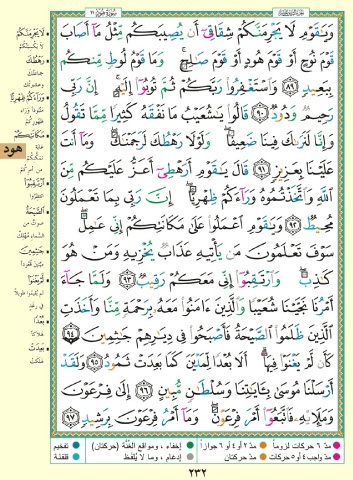 سورة هود ١١
وَيَٰقَوْمِ لَا يَجْرِمَنَّكُمْ شِقَاقِىٓ أَن يُصِيبَكُم مِّثْلُ مَآ أَصَابَ
قَوْمَ نُوحٍ أَوْ قَوْمَ هُودٍ أَوْ قَوْمَ صَٰلِحٍ ۚ وَمَا قَوْمُ لُوطٍ مِّنكُم
بِبَعِيدٍ ﴿٨٩﴾ وَٱسْتَغْفِرُوا۟ رَبَّكُمْ ثُمَّ تُوبُوٓا۟ إِلَيْهِ ۚ إِنَّ رَبِّى
رَحِيمٌ وَدُودٌ ﴿٩٠﴾ قَالُوا۟ يَٰشُعَيْبُ مَا نَفْقَهُ كَثِيرًا مِّمَّا تَقُولُ
وَإِنَّا لَنَرَىٰكَ فِينَا ضَعِيفًا ۖ وَلَوْلَا رَهْطُكَ لَرَجَمْنَٰكَ ۖ وَمَآ أَنتَ
عَلَيْنَا بِعَزِيزٍ ﴿٩١﴾ قَالَ يَٰقَوْمِ أَرَهْطِىٓ أَعَزُّ عَلَيْكُم مِّنَ
ٱللَّهِ وَٱتَّخَذْتُمُوهُ وَرَآءَكُمْ ظِهْرِيًّا ۖ إِنَّ رَبِّى بِمَا تَعْمَلُونَ
مُحِيطٌ ﴿٩٢﴾ وَيَٰقَوْمِ ٱعْمَلُوا۟ عَلَىٰ مَكَانَتِكُمْ إِنِّى عَٰمِلٌ ۖ
سَوْفَ تَعْلَمُونَ مَن يَأْتِيهِ عَذَابٌ يُخْزِيهِ وَمَنْ هُوَ
كَٰذِبٌ ۖ وَٱرْتَقِبُوٓا۟ إِنِّى مَعَكُمْ رَقِيبٌ ﴿٩٣﴾ وَلَمَّا جَآءَ
أَمْرُنَا نَجَّيْنَا شُعَيْبًا وَٱلَّذِينَ ءَامَنُوا۟ مَعَهُۥ بِرَحْمَةٍ مِّنَّا وَأَخَذَتِ
ٱلَّذِينَ ظَلَمُوا۟ ٱلصَّيْحَةُ فَأَصْبَحُوا۟ فِى دِيَٰرِهِمْ جَٰثِمِينَ ﴿٩٤﴾
كَأَن لَّمْ يَغْنَوْا۟ فِيهَآ ۗ أَلَا بُعْدًا لِّمَدْيَنَ كَمَا بَعِدَتْ ثَمُودُ ﴿٩٥﴾ وَلَقَدْ
أَرْسَلْنَا مُوسَىٰ بِـَٔايَٰتِنَا وَسُلْطَٰنٍ مُّبِينٍ ﴿٩٦﴾ إِلَىٰ فِرْعَوْنَ
وَمَلَإِي۟هِۦ فَٱتَّبَعُوٓا۟ أَمْرَ فِرْعَوْنَ ۖ وَمَآ أَمْرُ فِرْعَوْنَ بِرَشِيدٍ ﴿٩٧﴾
لا يجرمنكم
لا يكسبنكم
رهطك
جماعتك
وعشيرتك
وراءكم ظهريا
مكانتكم
هود
ارتقبوا
انتظروا
الصيحة
صوت من
السماء مهلك
جاثمين
لم يغنوا
بعدا
هلاكا
بعدت
هلكت
مدّ ٦ حركات لزوماً
مدّ ٢ أو ٤ أو ٦ جوازاً
إخفاء، ومواقع الغُنَّة (حركتان)
تفخيم
مدّ واجب ٤ أو ٥ حركات
مدّ حركتان
إدغام، وما لا يُلفَظ
قلقلة
٢٣٢